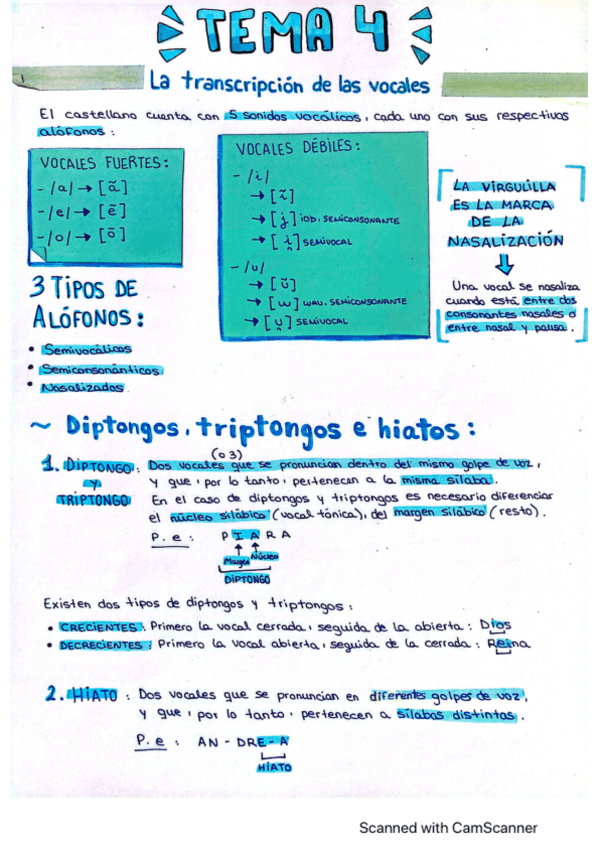 TEMA 4
La transcripción de las vocales
El castellano cuenta con 5 sonidos vocálicos, cada uno con sus respectivos
alófonos:
VOCALES FUERTES:
- /a/ → [ã]
- /e/ → [ẽ]
- /o/ → [õ]
VOCALES DÉBILES:
- /i/
→ [ĩ]
→ [j] iod, SEMICONSONANTE
→ [i̯] SEMIVOCAL
- /u/
→ [ũ]
→ [w] wau, SEMICONSONANTE
→ [u̯] SEMIVOCAL
LA VIRGULILLA
ES LA MARCA
DE LA
NASALIZACIÓN
Una vocal se nasaliza
cuando está entre dos
consonantes nasales o
entre nasal y pausa.
3 TIPOS DE
ALÓFONOS:
• Semivocálicos
• Semiconsonánticos
• Nasalizados
~ Diptongos, triptongos e hiatos:
(o 3)
1. DIPTONGO: Dos vocales que se pronuncian dentro del mismo golpe de voz,
y y que, por lo tanto, pertenecen a la misma sílaba.
TRIPTONGO En el caso de diptongos y triptongos es necesario diferenciar
el núcleo silábico (vocal tónica), del margen silábico (resto).
P.e: PIARA
Margen Núcleo
DIPTONGO
Existen dos tipos de diptongos y triptongos:
• CRECIENTES: Primero la vocal cerrada, seguida de la abierta: Dios
• DECRECIENTES: Primero la vocal abierta, seguida de la cerrada: Reina
2. HIATO: Dos vocales que se pronuncian en diferentes golpes de voz,
y que, por lo tanto, pertenecen a sílabas distintas.
P.e: AN - DRE - A
HIATO
Scanned with CamScanner